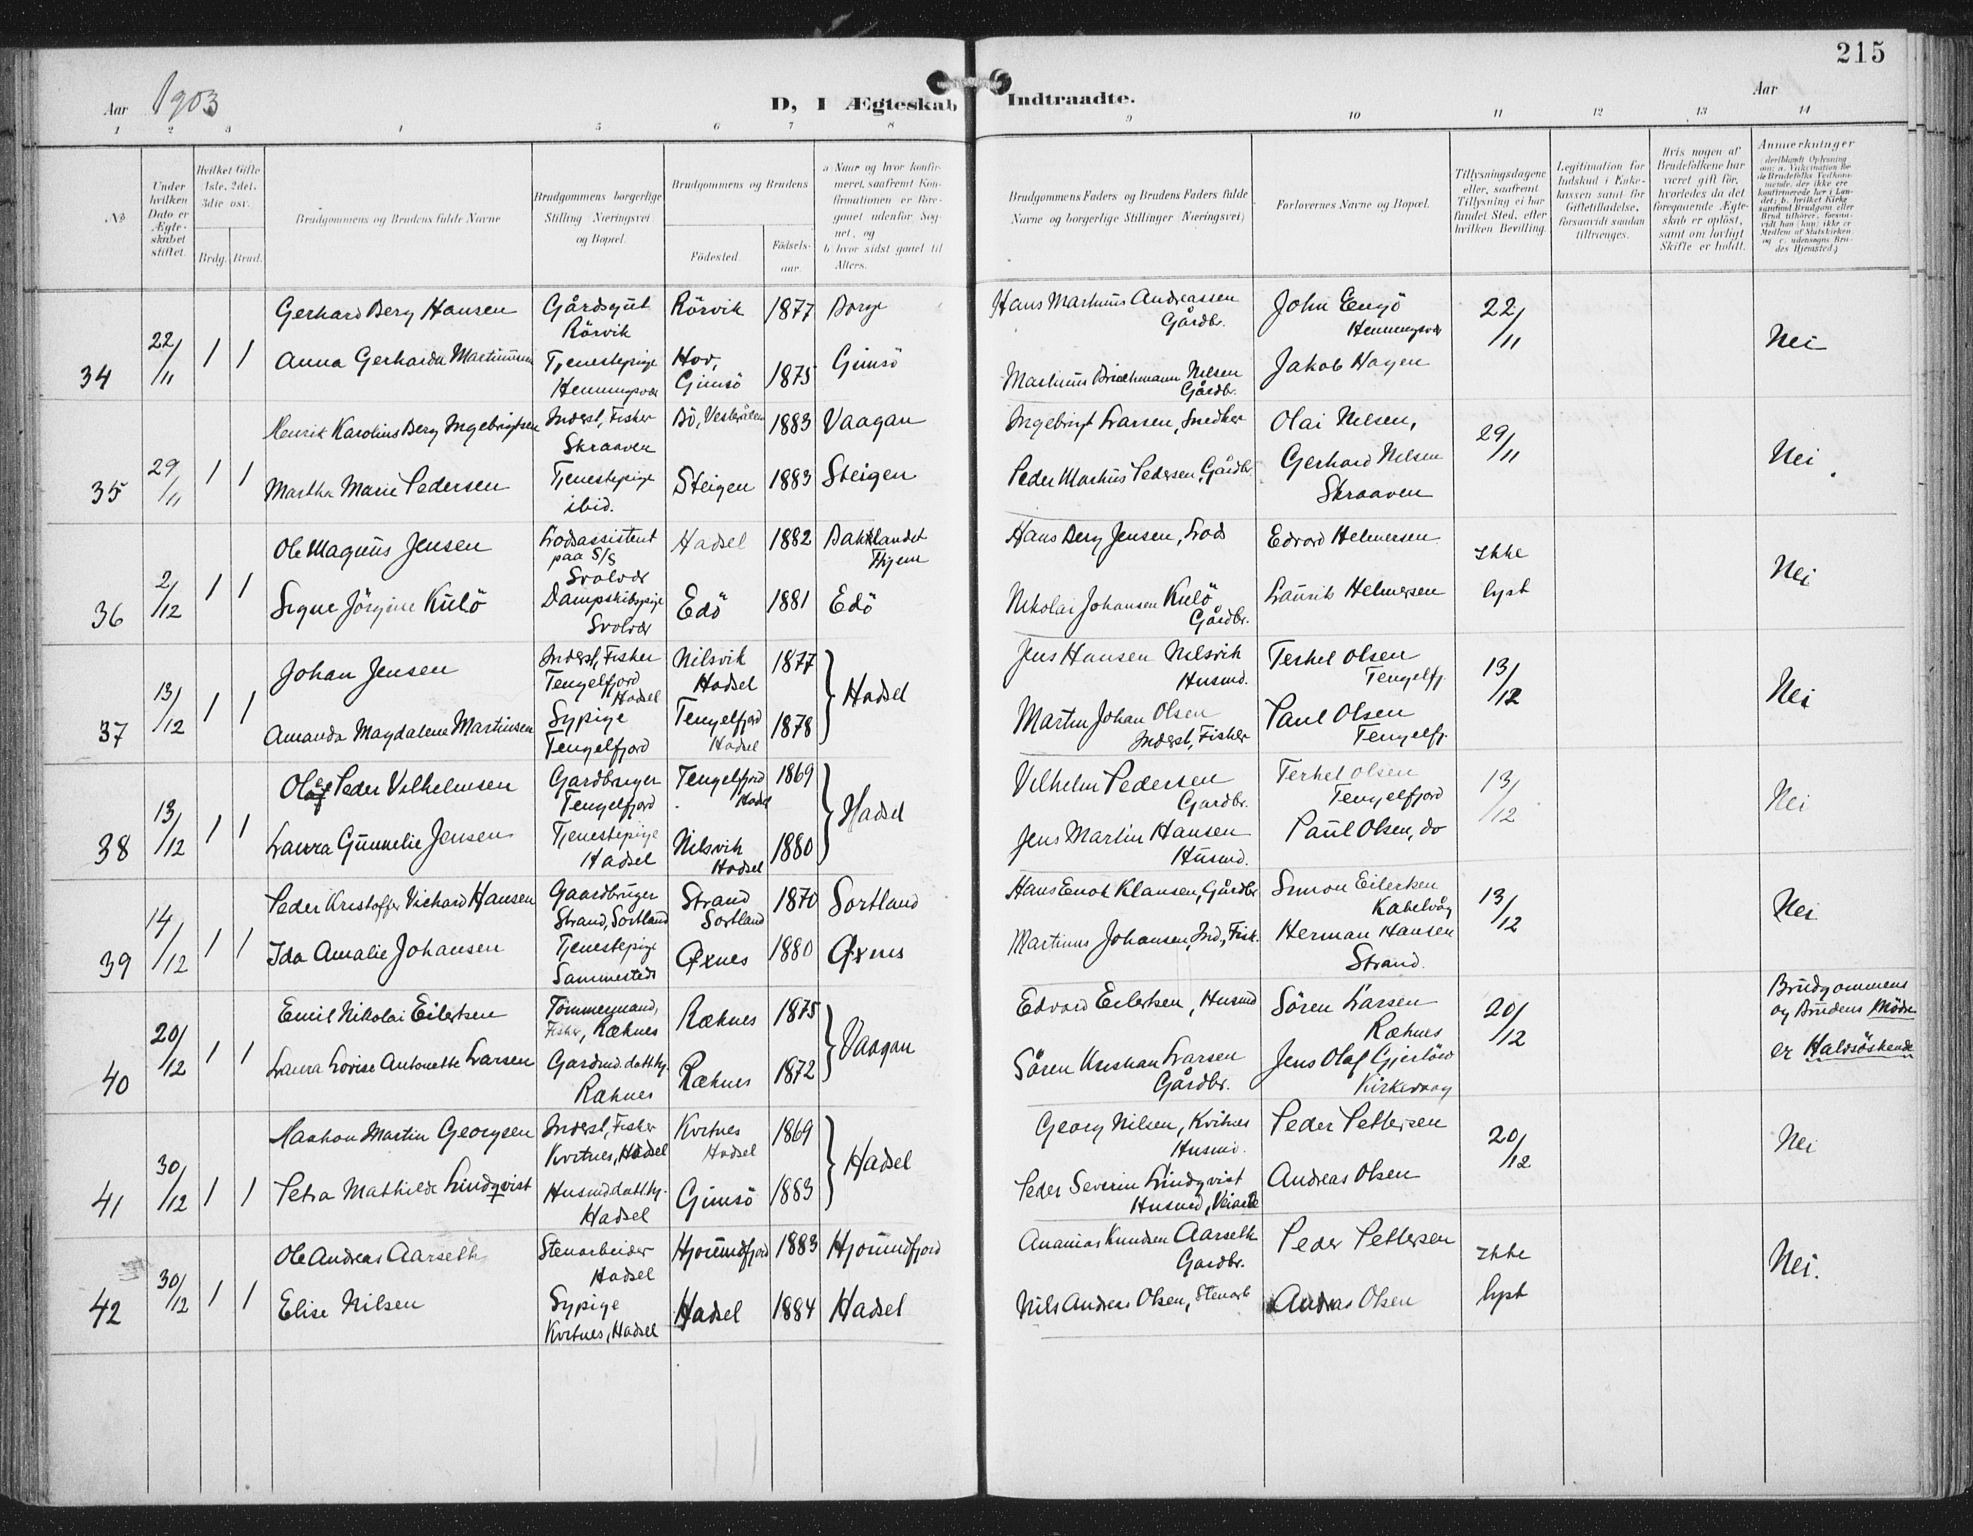 215
Aar 1903
D, I Ægteskab Indtraadte.
Aar
1 2 3 4 5 6 7 8 9 10 11 12 13 14
No
Under hvilken Dato er Ægteskabet stiftet.
Hvilket Gifte 1ste. 2det. 3die osv.
Brdg. Brud.
Brudgommens og Brudens fulde Navne
Brudgommens borgerlige Stilling Næringsvei og Bopæl.
Brudgommens og Brudens
Födested.
Födselsaar.
a Naar og hvor konfirmeret, saafremt Konfirmationen er foregaaet udenfor Sognet, og
b. hvor sidst gaaet til Alters.
Brudgommens Faders og Brudens Faders fulde Navne og borgerlige Stillinger Næringsvei)
Forlovernes Navne og Bopæl.
Tillysningsdagene eller, saafremt Tillysning ei har fundet Sted, efter hvilken Bevilling.
Legitimation for Indskud i Enkekassen samt for Giftetilladelse, forsaavidt saadan tiltrænges.
Hvis nogen af Brudefolkene har været gift för, hvorledes da det foregaaende Ægteskab er oplöst, samt om lovligt Skifte er holdt.
Anmerkninger
34 22/11 1 1
Gerhard Berg Hansen Gårdsgut Rörvik Rörvik 1877 Borge
Hans Martinus Andreassen Gårdbr. John Engö Henningsvær 22/11 Nei
Anna Gerharda Martinusen Tjenestepige Henningsvær Hov, Gimsö 1875 Gimsö
Martinus Nilsen Gårdbr. Jakob Hagen
35 29/11 1 1
Henrik Karolius Berg Ingebrigtsen Inderst, Fisker Skraaven Bö, Vesterålen 1883 Vaagan
Ingebrigt Larsen, Snedker Olai Nilsen, 29/11 Nei
Martha Marie Pedersen Tjenestepige ibid. Steigen 1883 Steigen
Peder Martius Pedersen, Gårdbr. Gerhard Nilsen Skraaven
36 2/12 1 1
Ole Magnus Jensen Lodsassistent paa S/S Svolvær Hadsel 1882 Baklandet Thjem
Hans Berg Jensen, Lods Edvard Helmersen Ikke lyst Nei
Signe Jörgine Kulö Dampskibspige Svolvær Edö 1881 Edö
Nikolai Johansen Kulö Gårdbr. Laurits Helmersen
37 13/12 1 1
Johan Jensen Inderst, Fisker Tengelfjord Hadsel Nilsvik Hadsel 1877 Hadsel
Jens Hansen Nilsvik Husmd. Terkel Olsen Tengelfj. 13/12 Nei
Amanda Magdalene Martinsen Sypige Tengelfjord Tengelfjord Hadsel 1878
Martin Johan Olsen Inderst, Fisker Paul Olsen Tengelfj.
38 13/12 1 1
Olaf Peder Vilhelmsen Gardbruger Tengelfjord Tengelfjord Hadsel 1869 Hadsel
Vilhelm Pedersen Gardbr. Terkel Olsen Tengelfjord 13/12 Nei
Laura Gunnelie Jensen Tjenestepige Hadsel Nilsvik Hadsel 1880
Jens Martin Hansen Husmd. Paul Olsen, do
39 14/12 1 1
Peder Kristoffer Richard Hansen Gaardbruger Strand, Sortland Strand Sortland 1870 Sortland
Hans Enok Klausen, Gårdbr Simon Eilertsen Kabelvåg 13/12 Nei
Ida Amalie Johansen Tjenestepige Sammesteds Øxnes 1880 Øxnes
Martinus Johansen, Ind., Fisk. Herman Hansen Strand.
40 20/12 1 1
Emil Nikolai Eilertsen Tømmermand, Fisker, Ræknes Ræknes 1875 Vaagan
Edvard Eilertsen, Husmd Sören Larsen Ræknes 20/12 Brudgommens og Brudens Mödre er Halvsöskende
Laura Lovise Antonette Larsen Gardmd. datt. Ræknes Ræknes 1872
Sören Kristian Larsen Gårdbr. Jens Olaf Gjerlöw Kirkevaag
41 30/12 1 1
Haakon Martin Georgsen Inderst, Fisker Kvitnes, Hadsel Kvitnes Hadsel 1869 Hadsel
Georg Nilsen, Kvitnes Husmd. Peder Pettersen 20/12 Nei
Petra Mathilde Lindqvist Husmd datt. Hadsel Gimsö 1883
Peder Severin Lindqvist Husmd, Andreas Olsen
42 30/12 1 1
Ole Andreas Aarseth Stenarbeider Hadsel Hjorundfjord 1883 Hjorundfjord
Ananias Knudsen Aarseth Gardbr. Peder Pettersen Ikke lyst Nei.
Elise Nilsen Sypige Kvitnes, Hadsel Hadsel 1884 Hadsel
Nils Andreas Olsen, Stenarb Andreas Olsen